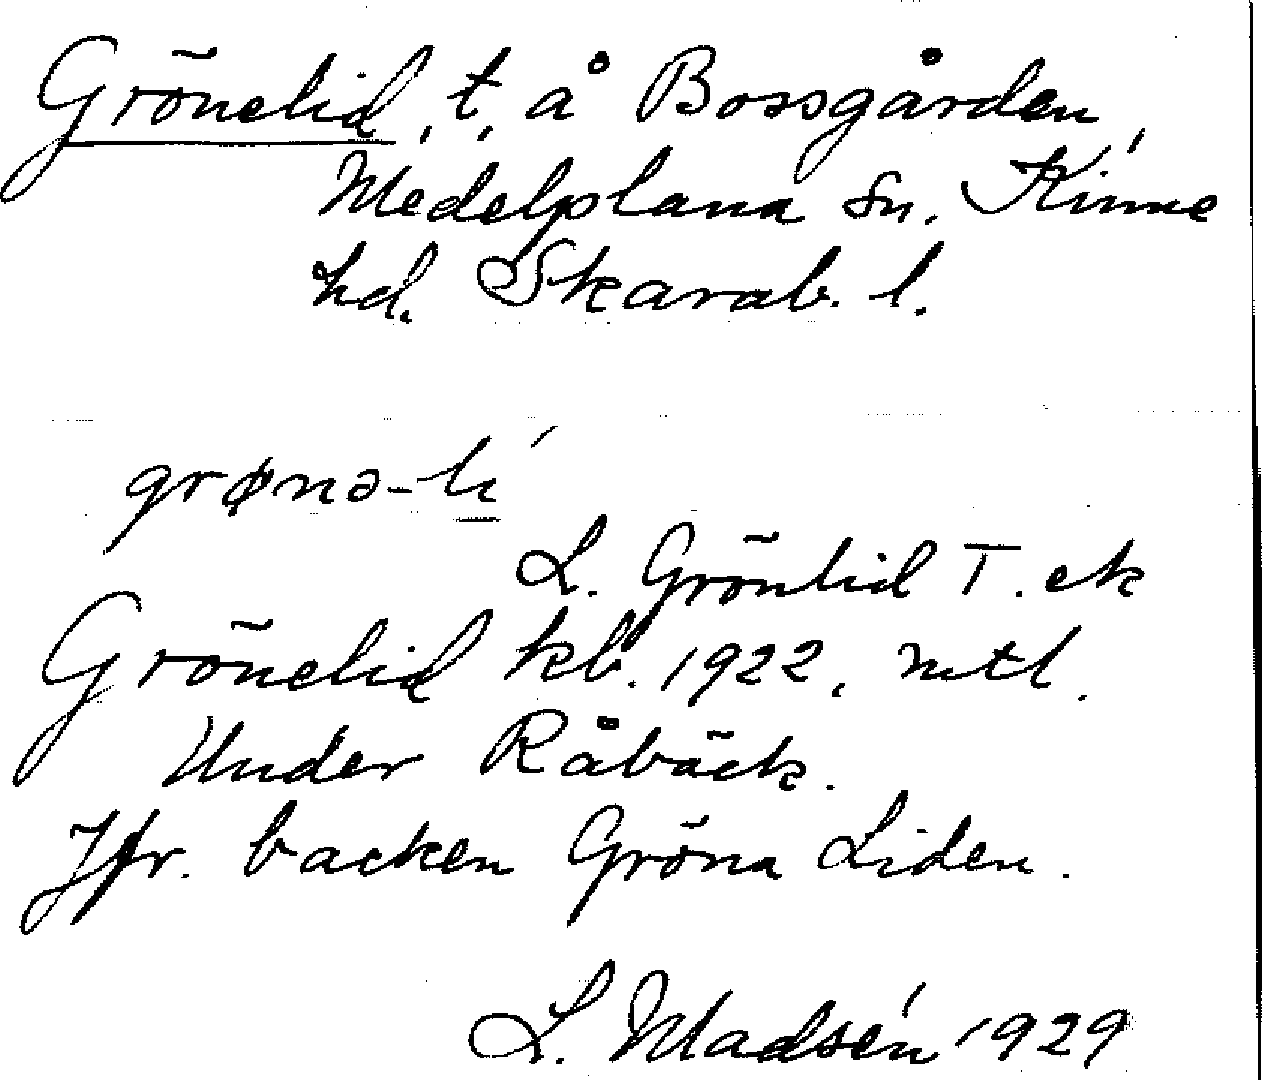 Grönelid, t, å Bossgården,
Medelplana sn. Kinne
hd. Skarab. l.
grønə-lí
L. Grönlid T. ek
Grönelid kb. 1922, mtl.
Under Råbäck.
Jfr. backen Gröna Liden.
L. Madsén 1929